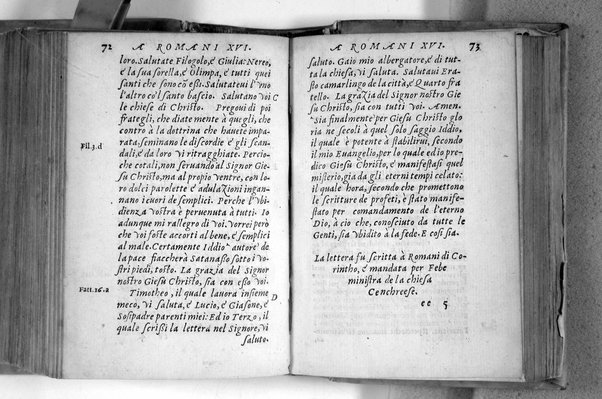 72 A ROMANI XVI.
loro. Salutate Filogolo, é Giulia: Nereo,
é la sua sorella, é Olimpa, é tutti quei
santi che sono cō essi. Salutateui l'uno
l'altro co'l santo bascio. Salutano voi C
le chiese di Christo. Pregoui di poi
frategli, che diate mente à quegli, che
contro à la dottrina che hauete impa-
Fil.3.d
rata, seminano le discordie é gli scan-
dali, é da loro vi ritragghiate. Percio-
che cotali, non seruendo al Signor Gie-
su Christo, ma al propio ventre, con lo-
ro dolci parolette é adulazioni ingan-
nano i cuori de semplici. Perche l'vb-
dienza vostra è peruenuta à tutti. Io
adunque mi rallegro di voi. vorrei però
che voi foste accorti al bene, é semplici
al male. Certamente Iddio autore de
la pace fiaccherà Satanasso sotto i vo-
stri piedi, tosto. La grazia del Signor
nostro Giesu Christo, sia con esso voi.
Fatt.16.2
Timotheo, il quale lauora insieme D
meco, vi saluta, é Lucio, é Giasone, é
Sosipadre parenti miei: Ed io Terzo, il
quale scrissi la lettera nel Signore, vi
saluto.
A ROMANI XVI. 73
saluto. Gaio mio albergatore, é di tut-
ta la chiesa, vi saluta. Salutaui Era-
sto camarlingo de la città, é Quarto fra
tello. La grazia del Signor nostro Gie
su Christo, sia con tutti voi. Amen.
Sia finalmente per Giesu Christo glo
ria ne secoli à quel solo saggio Iddio,
il quale è potente à stabilirui, secondo
il mio Euangelio, per lo quale ed io pre-
dico Giesu Christo, é manifestasi quel
misterio, gia da gli eterni tempi celato:
il quale hora, secondo che promettono
le scritture de profeti, è stato manife-
stato per comandamento de l'eterno
Dio, à cio che, conosciuto da tutte le
Genti, sia vbidito à la fede. E così sia.
La lettera fu scritta à Romani di Co-
rintho, é mandata per Febe
ministra de la chiesa
Cenchreese.
ee 5